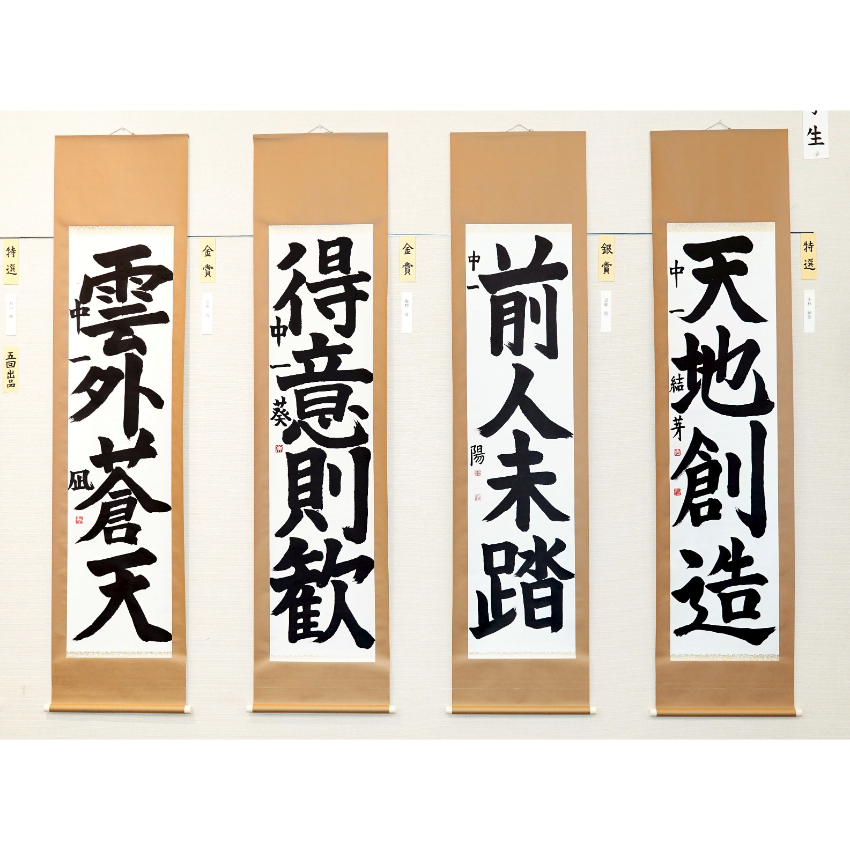 生
特選
天地創造
中一 結芽
銀賞
前人未踏
中一 陽
金賞
得意則歓
中一 葵
金賞
雲外蒼天
中一 凪
特選
五回出品